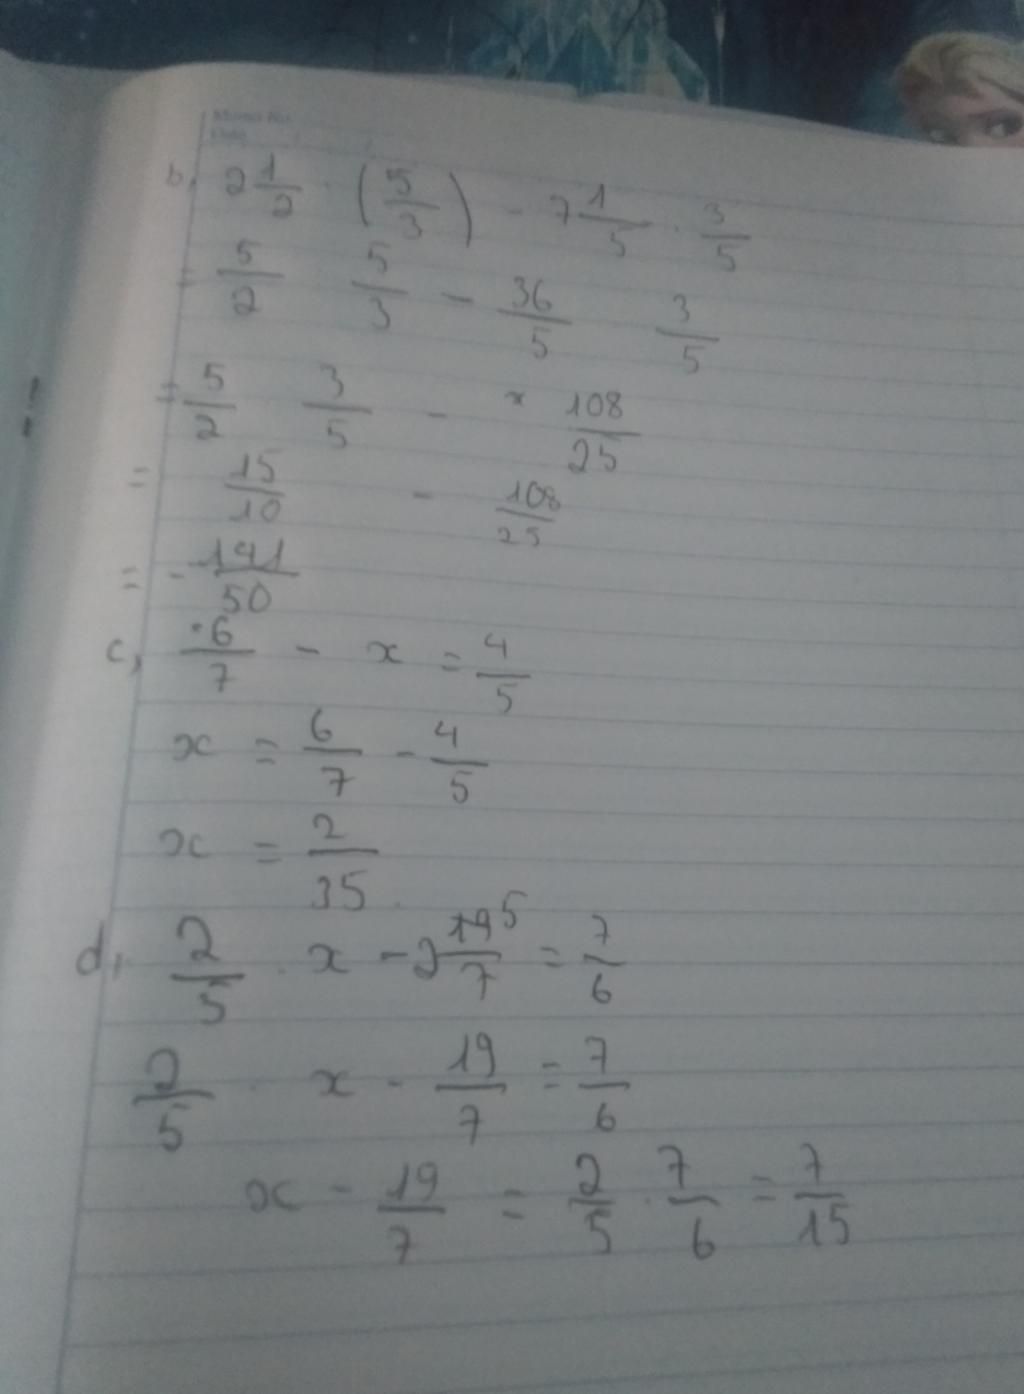 b, 2 1/2 · (5/3) - 7 1/5 · 3/5
= 5/2 5/3 - 36/5 3/5
= 5/2 · 3/5 - x 108/25
= 15/10 - 108/25
= - 141/50
c, 6/7 - x = 4/5
x = 6/7 - 4/5
x = 2/35
d, 2/5 · x - 2 5/7 = 7/6
2/5 · x - 19/7 = 7/6
x - 19/7 = 2/5 · 7/6 = 7/15